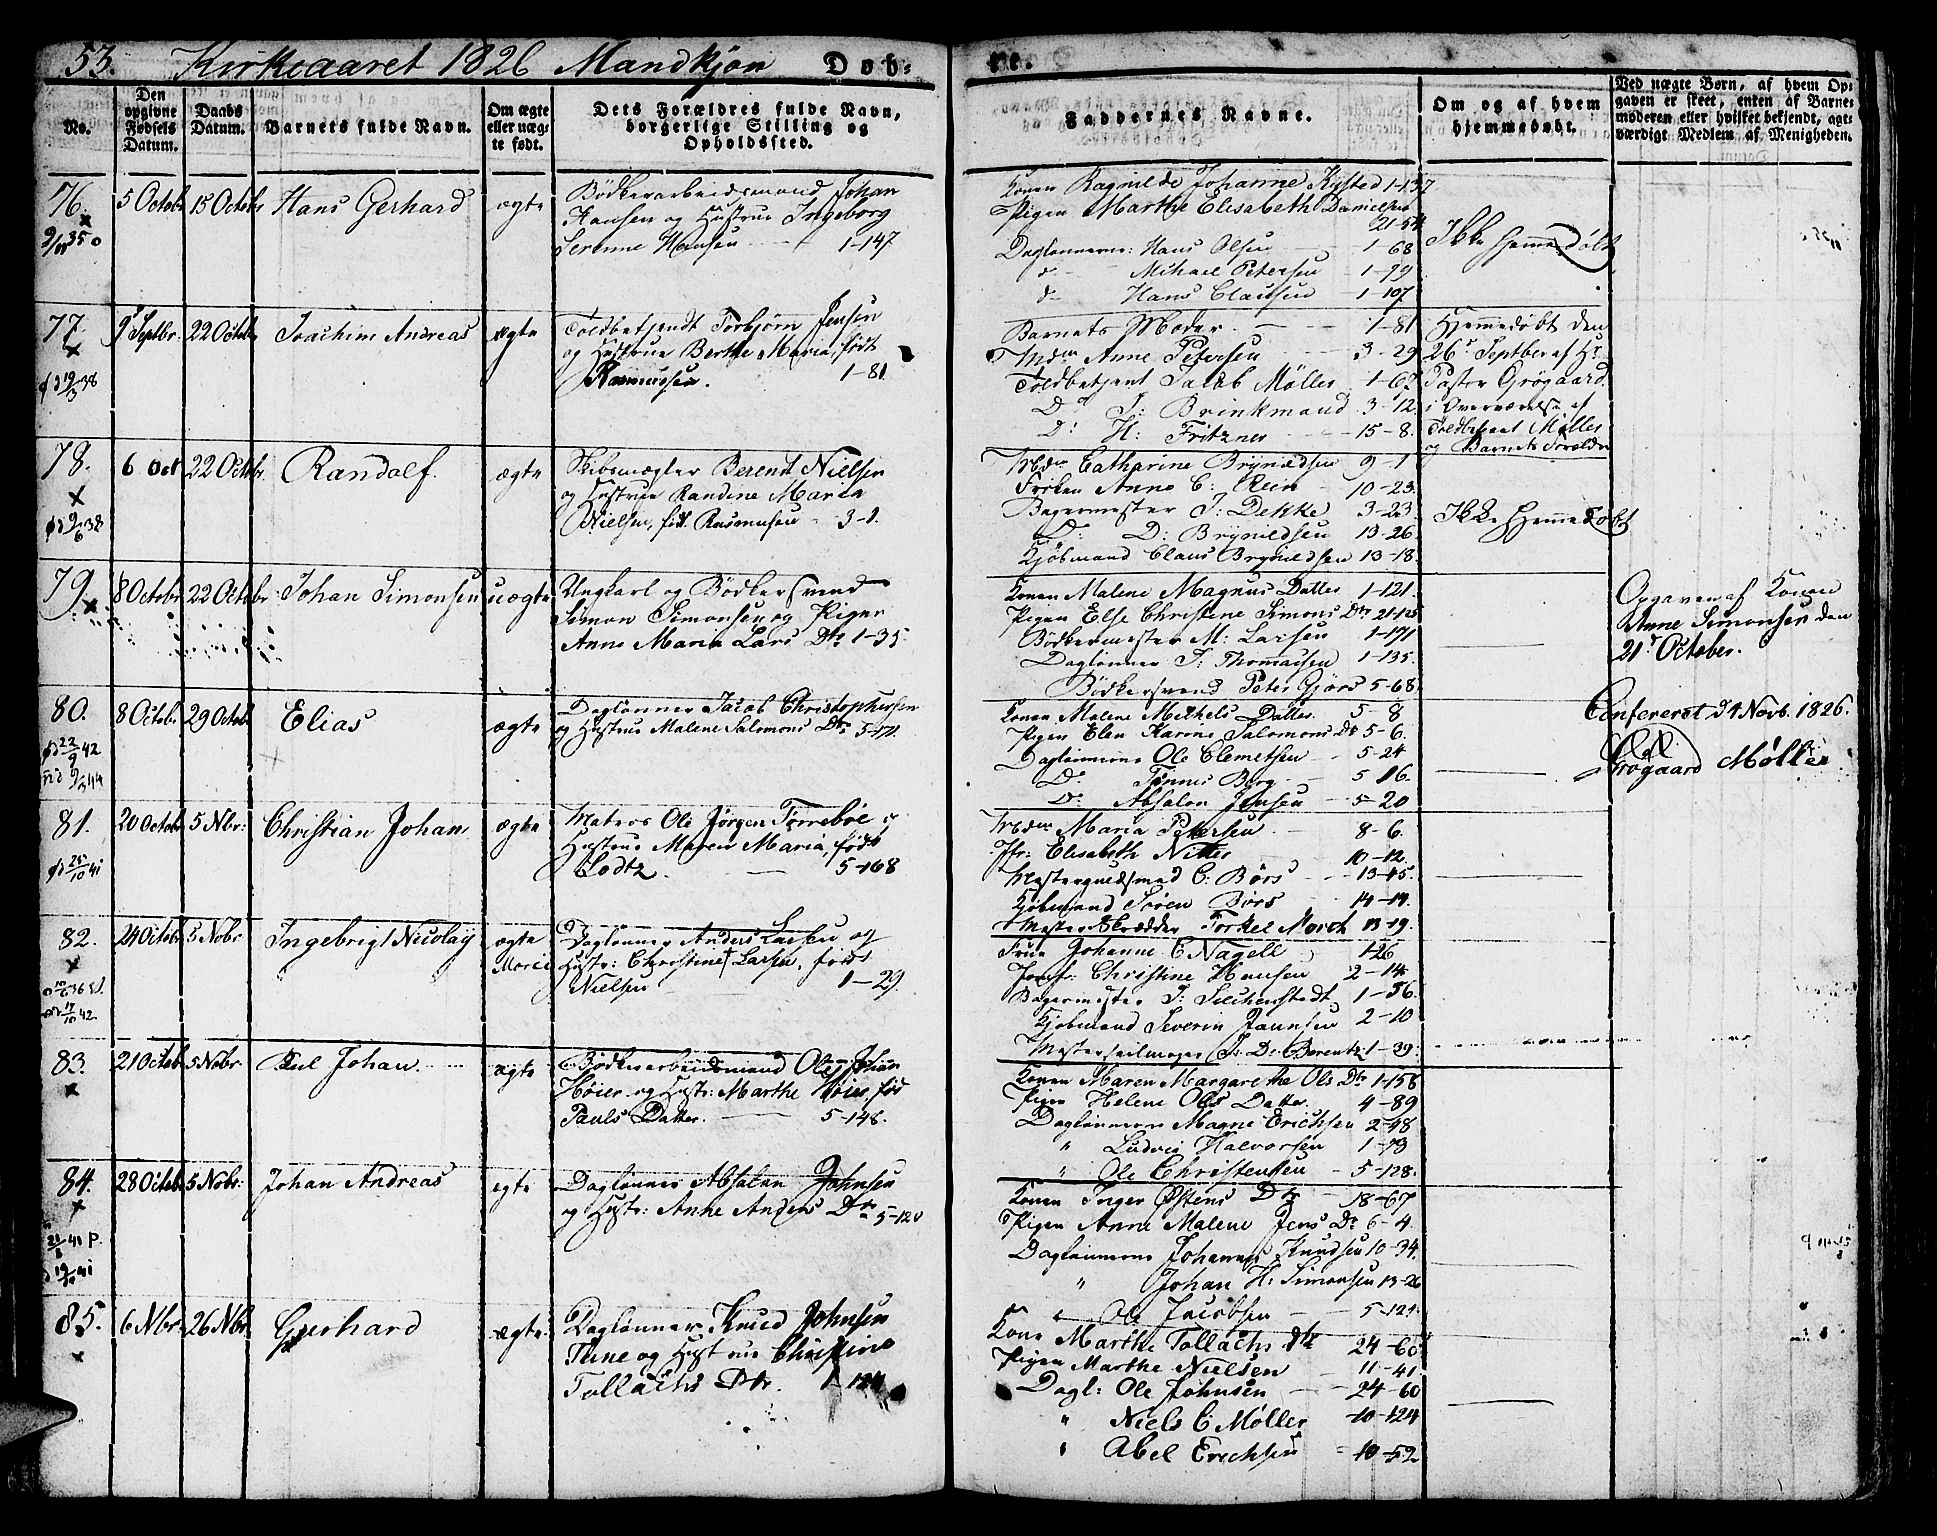 53. Kirkeaaret 1826 Mandkjøn Døb-
te.
No.
Den opgivne Fødsels Datum.
Daabs Datum.
Barnets fulde Navn.
Om ægte eller uægte født.
Dets Forældres fulde Navn, borgerlige Stilling og Opholdssted.
Faddernes Navne.
Om og af hvem hjemmedøbt.
Ved uægte Børn, af hvem Opgaven er skeet, enten af Barnemoderen eller hvilket bekjendt, agtværdigt Medlem af Menigheden.
76. 5 Octobr 15 Octobr Hans Gerhard ægte
Bødkerarbeidsmand Johan
Hansen og Hustrue Ingeborg
Serenne Hansen 1-147
Konen Ragnilde Johanne Kysted 1-137
Pigen Marthe Elisabeth Danielsen
21-54
Daglønnerne: Hans Olsen 1-68
d Michael Petersen 1-79
d Hans Claussen 1-107
Ikke Hjemmedøbt
77. 9 Septbr. 22 Octobr Joachim Andreas ægte
Toldbetjendt Torbjørn Jensen
og Hustrue Berthe Maria, født
Rasmussen. 1-81
Barnets Moder 1-81
Anne Petersen 3-29
Toldbetjent Jacob Møller 1-67
D° J: Brinkmand 3-12
D: H: Fritzner 15-8.
Hjemmedøbt den
26 Septber af Hr
Pastor Grøgaard
i Overværelse af
Toldbetjent Møller
og Barnets Forældre
78. 6 Oct 22 Octobr Randolf. ægte
Skibsmægler Berent Nielsen
og Hustrue Randine Maria
Nielsen, fød. Rasmusen 3-1.
Catharine Brynildsen 9-1
Frøken Anne C: Rein 10-23.
Bagermester J: Dekke 3-23
D: D: Brynildsen 13-26
Kjøbmand Claus Brynildsen 13-18.
Ikke Hjemmedøbt
79. 8 Octobr 22 Octobr Johan Simonsen uægte
Ungkarl og Bødkersvend
Simon Simonsen og Pigen
Anne Maria Lars Dtr 1-35
Konen Malene Magnus Datter 1-121.
Pigen Else Christine Simons Dtr 21-125
Bødkermester M: Larsen 1-171
Daglønner J: Thomassen 1-135.
Bødkersvend Peter Gjørs 5-68
Opgaven af Konen
Anne Simonsen den
21 October.
80. 8 Octobr 29 Octobr Elias ægte
Daglønner Jacob Christophersen
og Hustrue Malene Salomons Dtr 5-
Konen Malene Michels Datter 5 8
Pigen Elen Karine Salomons Dr 5-6.
Daglønnerne Ole Clemetsen 5-24
D: Tønnes Berg 5 16.
D: Absalon Jensen 5-20
Confereret d 4 Novb. 1826.
Grøgaard Møller
81. 20 Octobr 5 Nbr: Christian Johan ægte
Matros Ole Jørgen Torreboe og
Hustrue Maren Maria, født
Lodtz. 5-168
Maria Petersen 8-6.
Jfr: Elisabeth Nitter 10-12.
C: Børs 13-45.
Kjøbmand Sören Børs 14-14.
Mester Skrædder Torkel Morch 13-19.
82. 24 Octobr 5 Nobr Ingebrigt Nicolay ægte
Daglønner Anders Larsen og
Hustr: Christine Larsen, født
Nielsen 1-29.
Frue Johanne C Nagell 1-26
Jomfr: Christine Hansen 2-14
Bagermester J: Siechenstedt 1-56
Kjøbmand Severin Jaunsen 2-10
Mesterseilmager J: D: Berentz 1-39.
83. 21 Octobr 5 Nobr Paul Johan ægte
Bødkerarbeidsmand Ole Johan
Høier og Hustr: Marthe Høier, fød
Pauls Datter. 5-148.
Konen Maren Margarethe Ols Dtr 1-158
Pigen Helene Ols Datter 4-89
Daglønnerne Magne Erichsen 2-48
" Ludvig Halvorsen 1-73
" Ole Christensen 5-128.
84. 28 Octobr 5 Nobr: Johan Andreas egte
Daglønner Absalon Johnsen
og Hustr: Anne Anders Dtr 5-120
Konen Inger Østens Dtr 18-67
Pigen Anne Malene Jens Dr 6-4.
Daglønnerne Johannes Knudsen 10-34.
" Johan H: Simonsen 13-26
" Ole Jacobsen 5-121.
85. 6 Nbr. 26 Nbr Gerhard ægte
Daglønner Knud Johnsen
Tene og Hustrue Christine
Tollachs Dtr.
Kone Marthe Tollachs Dtr 24-60
Pigen Marthe Nielsen 11-41.
Dagl: Ole Johnsen 24-60
" Niels C: Møller 10-124
" Abel Erichsen 10-52